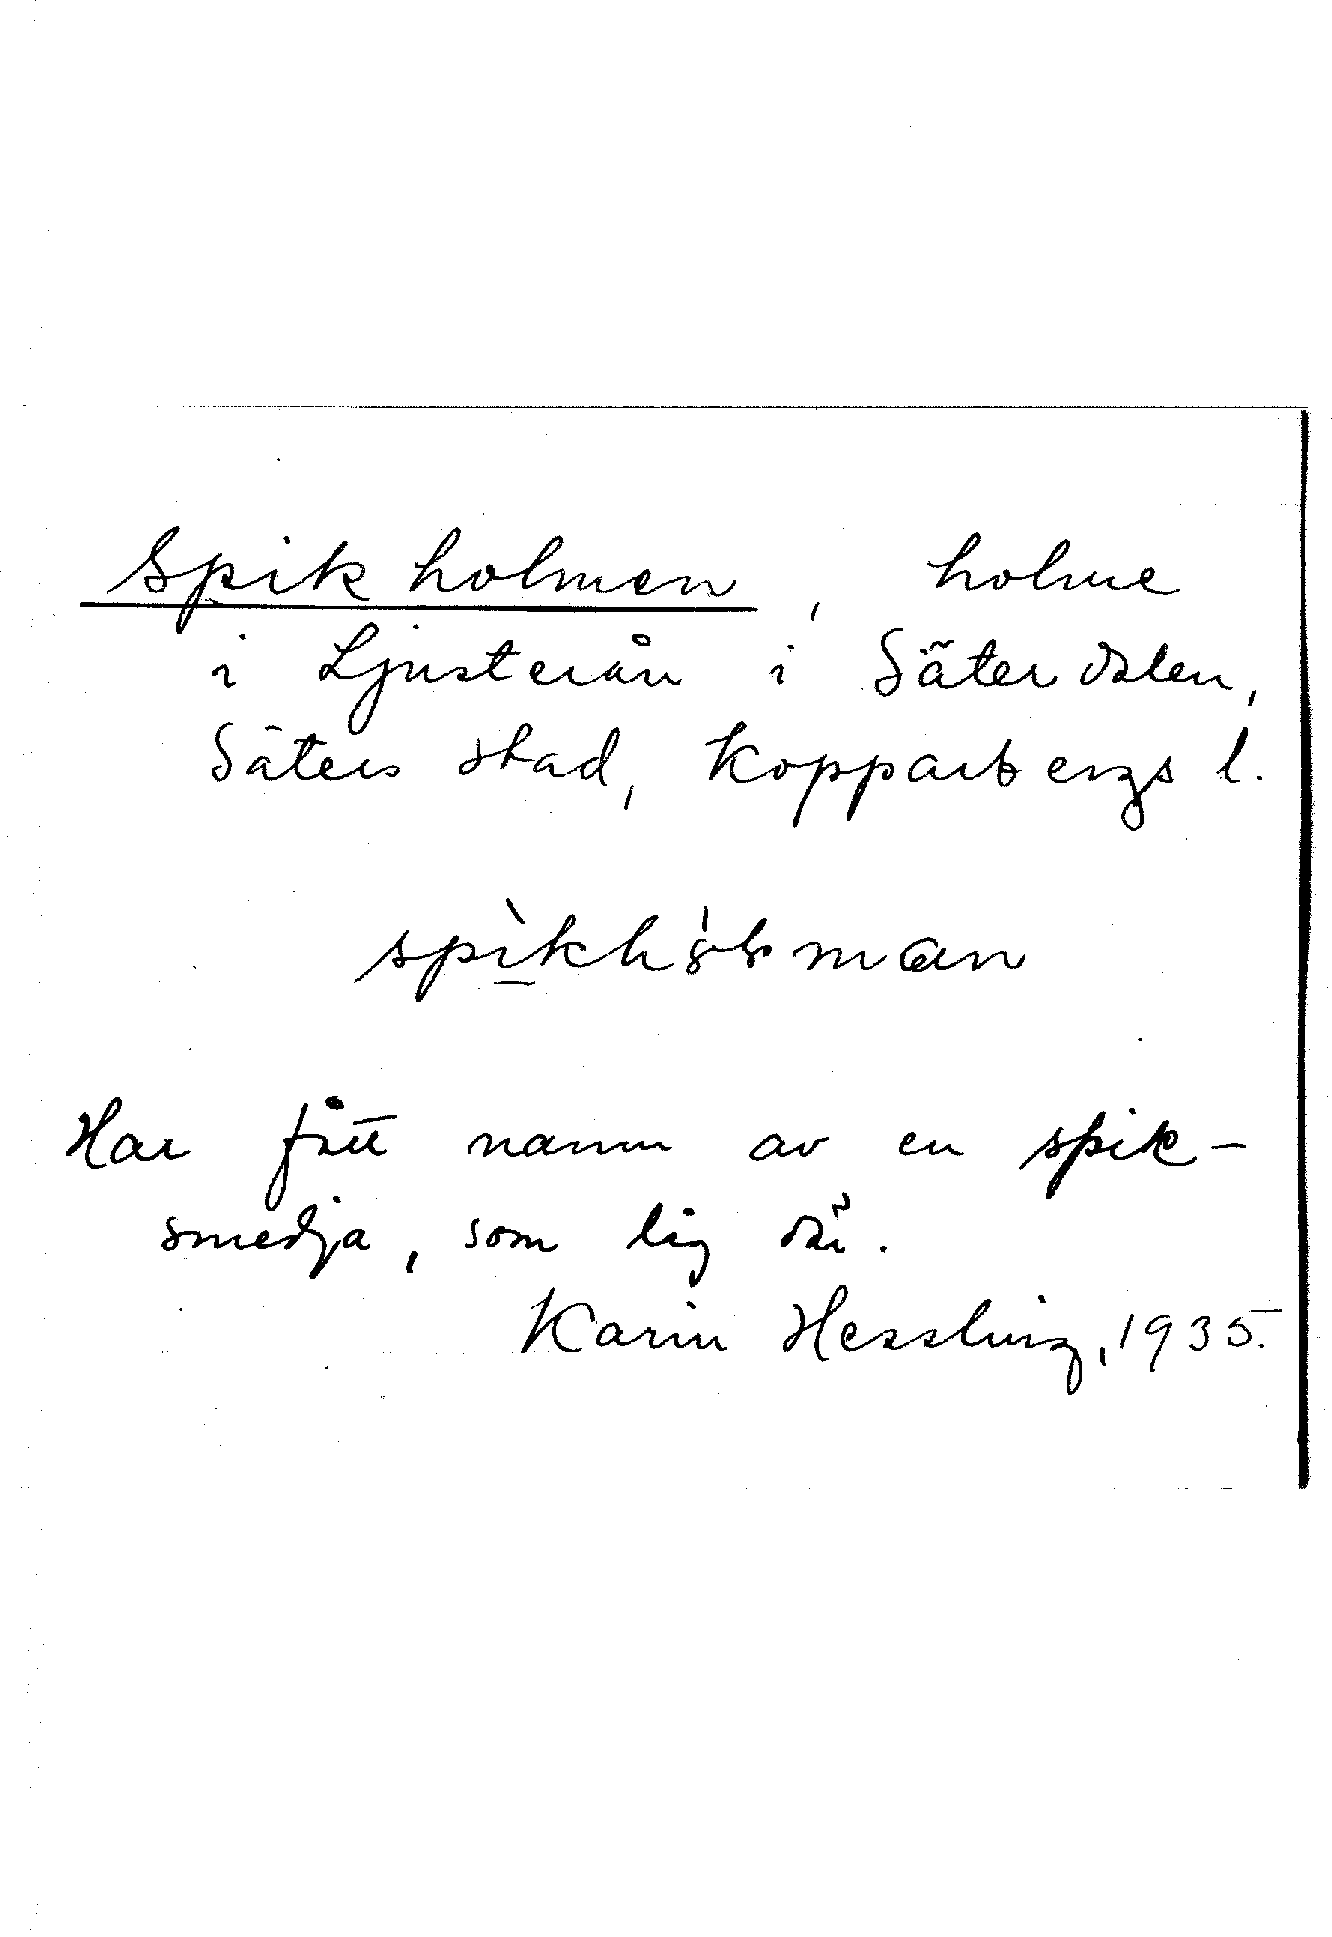 Spikholmen, holme
i Ljusterån i Säterdalen,
Säters stad, Kopparbergs l.
Har fått namn av en spik-
smedja, som låg där.
Karin Hessling, 1935.